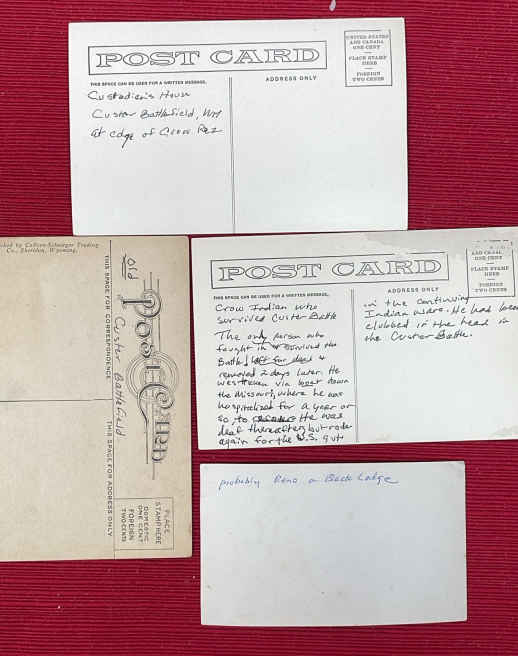 POST CARD
UNITED STATES
AND CANADA
ONE CENT
PLACE STAMP
HERE
FOREIGN
TWO CENTS
THIS SPACE CAN BE USED FOR A WRITTEN MESSAGE.
ADDRESS ONLY
Custodien's House
Custer Battlefield,
at edge of Crow Rez
Trading
Co., Sheridan, Wyoming.
THIS SPACE FOR CORRESPONDENCE
THIS SPACE FOR ADDRESS ONLY
Old
Custer Battlefield
POST CARD
PLACE
STAMP HERE
DOMESTIC
ONE CENT
FOREIGN
TWO CENTS
POST CARD
AND CANADA
ONE CENT
PLACE STAMP
HERE
FOREIGN
TWO CENTS
THIS SPACE CAN BE USED FOR A WRITTEN MESSAGE.
ADDRESS ONLY
Crow Indian who
survived Custer Battle
The only person who
fought in & survived the
Battle, left for dead &
removed 2 days later. He
was taken via boat down
the Missouri, where he was
hospitalized for a year or
so, to He was
deaf thereafter, but rode
again for the U.S. gvt
in the continuing
Indian wars. He had been
clubbed in the head in
the Custer Battle.
probably Reno or Back Lodge